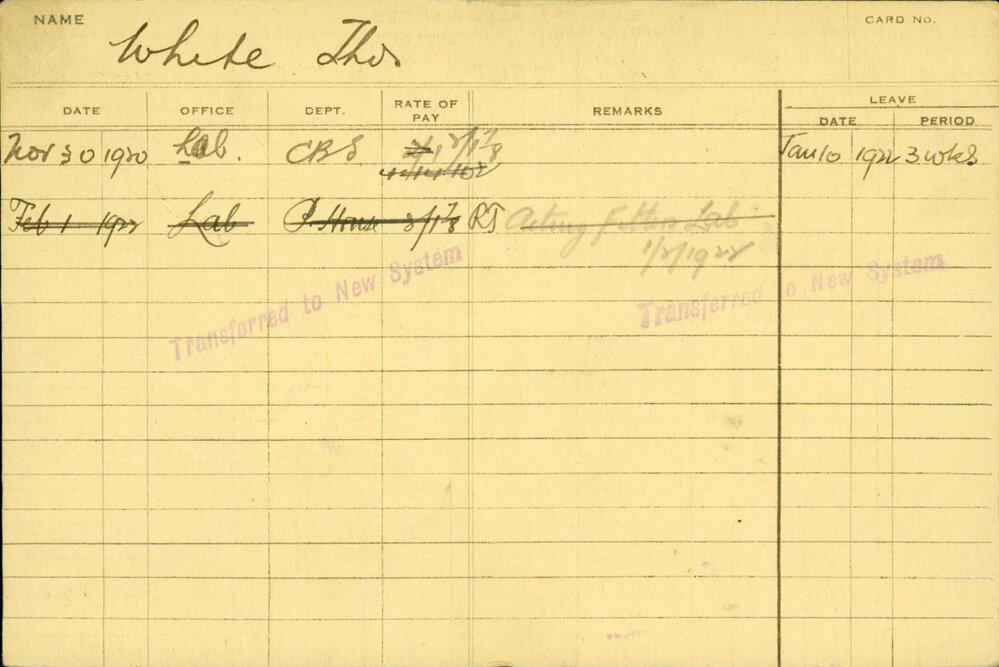 NAME White Thos CARD No.
DATE OFFICE DEPT. RATE OF PAY REMARKS LEAVE
DATE PERIOD
Nov 30 1920 Lab. CBS 2/1 3/1⅞ Jan 10 1922 3 wks
Feb 1 1922 Lab P. House 3/1⅞ RT Acting Fitters Lab
1/2/1922
Transferred to New System
Transferred to New System